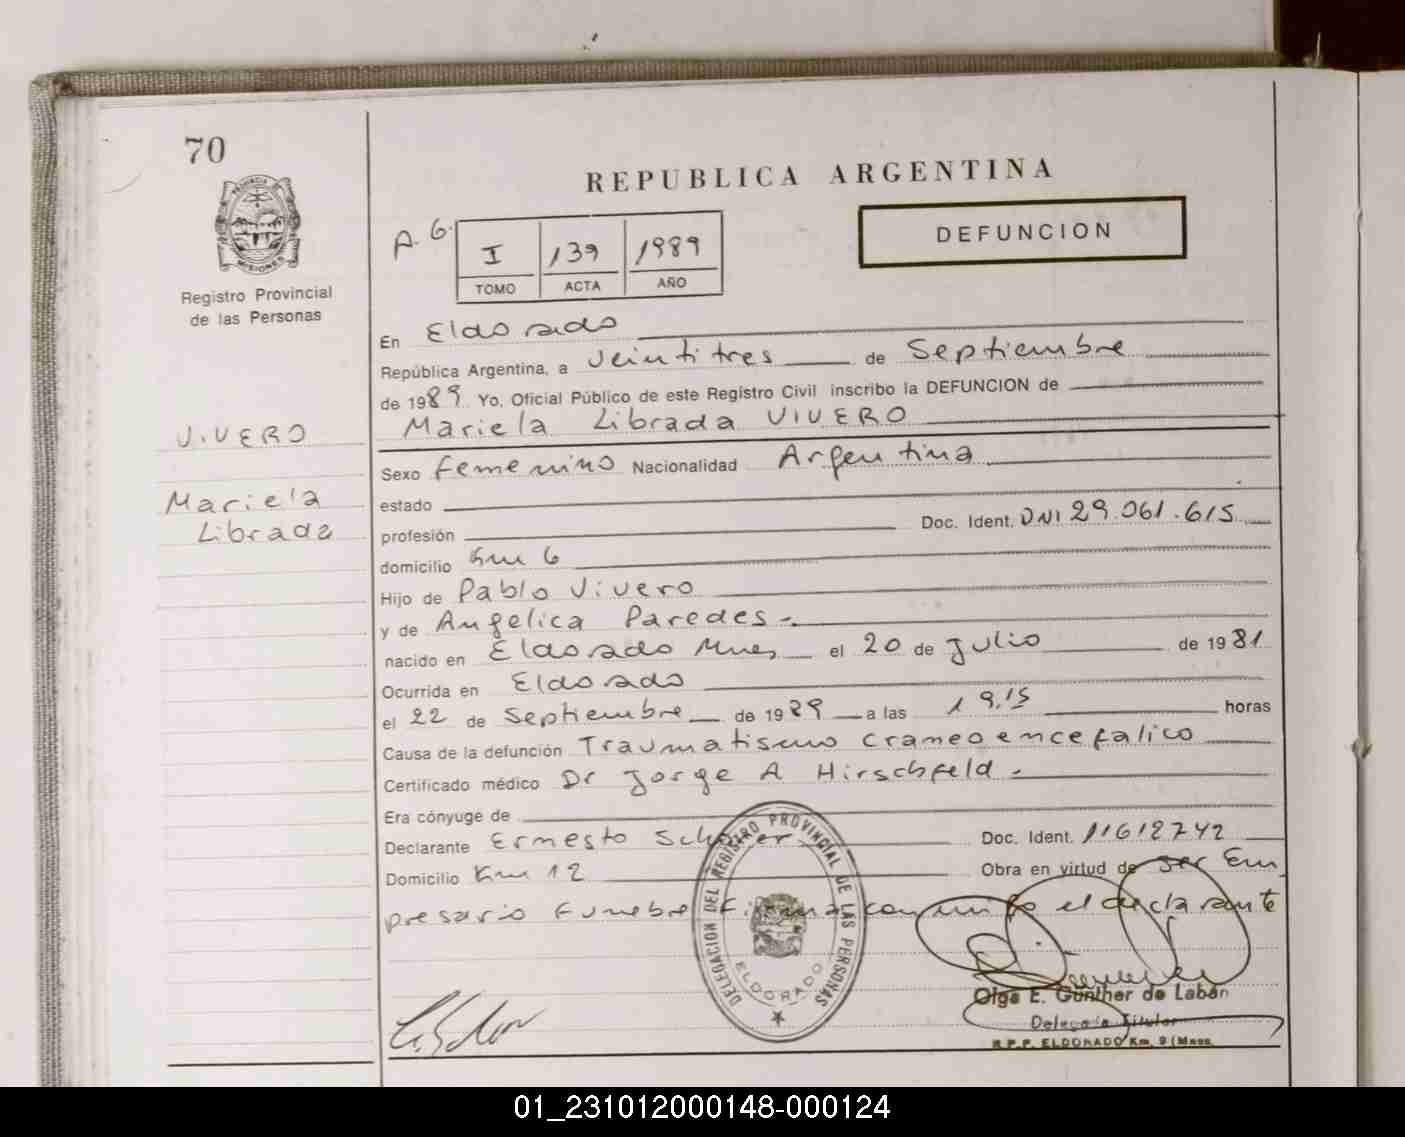 70
REPUBLICA ARGENTINA
PROVINCIA DE
MISIONES
Registro Provincial
de las Personas
A. G.
I 139 1989
TOMO ACTA AÑO
DEFUNCION
En Eldorado
República Argentina, a veintitres de Septiembre
de 1989 Yo, Oficial Público de este Registro Civil inscribo la DEFUNCION de
Mariela Librada VIVERO
VIVERO
Mariela
Librada
Sexo femenino Nacionalidad Argentina
estado
profesión Doc. Ident. DNI 29.061.615
domicilio Km 6
Hijo de Pablo Vivero
y de Angelica Paredes -
nacido en Eldorado Mnes el 20 de Julio de 1981
Ocurrida en Eldorado
el 22 de Septiembre de 1989 a las 19,15 horas
Causa de la defunción Traumatismo craneoencefalico
Certificado médico Dr Jorge A Hirschfeld -
Era cónyuge de
Declarante Ernesto Doc. Ident. 11612742
Domicilio Km 12 Obra en virtud de ser Em
presario Funebre Firma conmigo el declarante
DELEGACION DEL REGISTRO PROVINCIAL DE LAS PERSONAS
ELDORADO
Olga E. Günther de Labán
Delegada Titular
R.P.P. ELDORADO Km. 9 (Mnes.
01_231012000148-000124